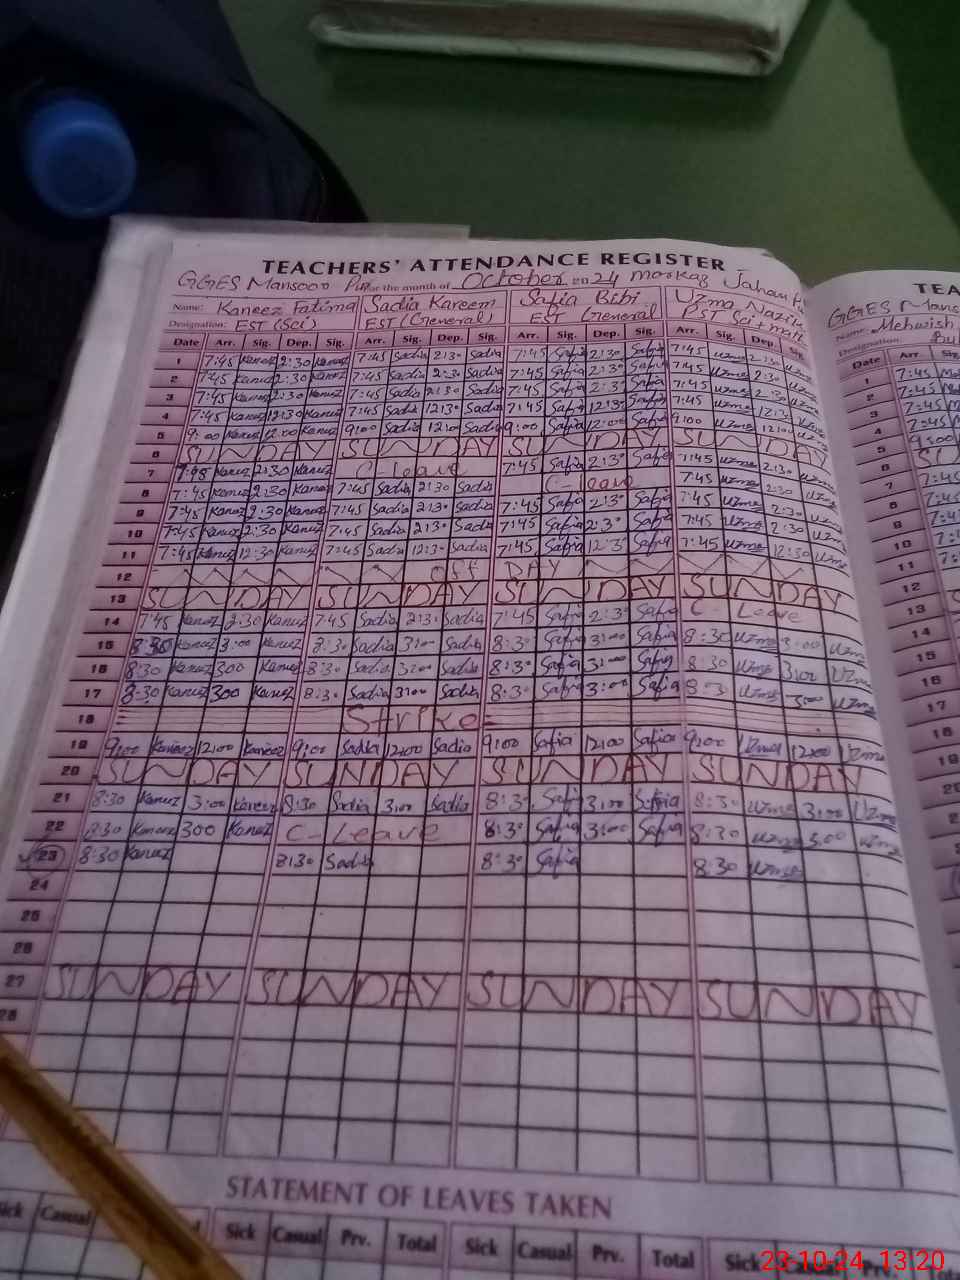 TEACHERS' ATTENDANCE REGISTER
GGES Mansoor Pur for the month of October on 24 markaz Jahan
Name: Kaneez Fatima Sadia Kareem Safia Bibi Uzma
Designation: EST (Sci) EST (General) EST General PST Sci + math
Date Arr. Sig. Dep. Sig. Arr. Sig. Dep. Sig. Arr. Sig. Dep. Sig. Arr. Sig. Dep. Sig.
1 7:45 Kaneez 2:30 Kaneez 7:45 Sadia 2:30 Sadia 7:45 Safia 2:30 Safia 7:45 Uzma 2:30 Uzma
2 7:45 Kaneez 2:30 Kaneez 7:45 Sadia 2:30 Sadia 7:45 Safia 2:30 Safia 7:45 Uzma 2:30 Uzma
3 7:45 Kaneez 2:30 Kaneez 7:45 Sadia 2:30 Sadia 7:45 Safia 2:30 Safia 7:45 Uzma 2:30 Uzma
4 7:45 Kaneez 12:30 Kaneez 7:45 Sadia 12:30 Sadia 7:45 Safia 12:30 Safia 7:45 Uzma 12:30 Uzma
5 9:00 Kaneez 12:00 Kaneez 9:00 Sadia 12:00 Sadia 9:00 Safia 12:00 Safia 9:00 Uzma 12:00 Uzma
6 SUNDAY SUNDAY SUNDAY SUNDAY
7 7:45 Kaneez 2:30 Kaneez C-Leave 7:45 Safia 2:30 Safia 7:45 Uzma 2:30 Uzma
8 7:45 Kaneez 2:30 Kaneez 7:45 Sadia 2:30 Sadia C-Leave 7:45 Uzma 2:30 Uzma
9 7:45 Kaneez 2:30 Kaneez 7:45 Sadia 2:30 Sadia 7:45 Safia 2:30 Safia 7:45 Uzma 2:30 Uzma
10 7:45 Kaneez 2:30 Kaneez 7:45 Sadia 2:30 Sadia 7:45 Safia 2:30 Safia 7:45 Uzma 2:30 Uzma
11 7:45 Kaneez 12:30 Kaneez 7:45 Sadia 12:30 Sadia 7:45 Safia 12:30 Safia 7:45 Uzma 12:30 Uzma
12 Off DAY
13 SUNDAY SUNDAY SUNDAY SUNDAY
14 7:45 Kaneez 2:30 Kaneez 7:45 Sadia 2:30 Sadia 7:45 Safia 2:30 Safia C-Leave
15 8:30 Kaneez 3:00 Kaneez 8:30 Sadia 3:00 Sadia 8:30 Safia 3:00 Safia 8:30 Uzma 3:00 Uzma
16 8:30 Kaneez 300 Kaneez 8:30 Sadia 3:00 Sadia 8:30 Safia 3:00 Safia 8:30 Uzma 3:00 Uzma
17 8:30 Kaneez 300 Kaneez 8:30 Sadia 3:00 Sadia 8:30 Safia 3:00 Safia 8:30 Uzma 3:00 Uzma
18 Strike
19 9:00 Kaneez 12:00 Kaneez 9:00 Sadia 12:00 Sadia 9:00 Safia 12:00 Safia 9:00 Uzma 12:00 Uzma
20 SUNDAY SUNDAY SUNDAY SUNDAY
21 8:30 Kaneez 3:00 Kaneez 8:30 Sadia 3:00 Sadia 8:30 Safia 3:00 Safia 8:30 Uzma 3:00 Uzma
22 8:30 Kaneez 300 Kaneez C-Leave 8:30 Safia 3:00 Safia 8:30 Uzma 3:00 Uzma
23 8:30 Kaneez 8:30 Sadia 8:30 Safia 8:30 Uzma
24
25
26
27 SUNDAY SUNDAY SUNDAY SUNDAY
28
STATEMENT OF LEAVES TAKEN
Sick Casual Sick Casual Prv. Total Sick Casual Prv. Total Sick
TEA
GGES
Name: Mehwish
Designation:
Date Arr.
1 7:45
2 7:45
3 7:45
4 7:45
5
6
7
8
9
10
11
12
13
14
15
16
17
18
19
20
23-10-24 13.20